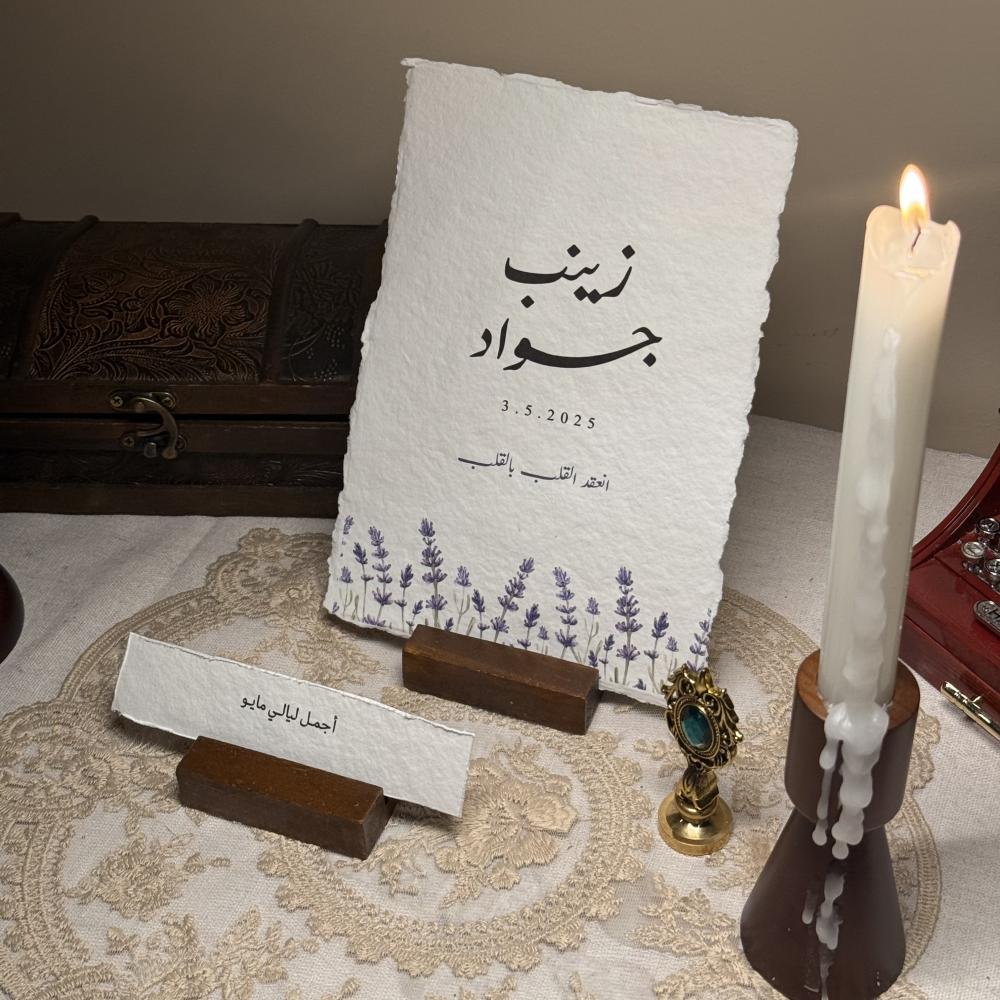 زينب
جواد
3.5.2025
انعقد القلب بالقلب
أجمل ليالي مايو